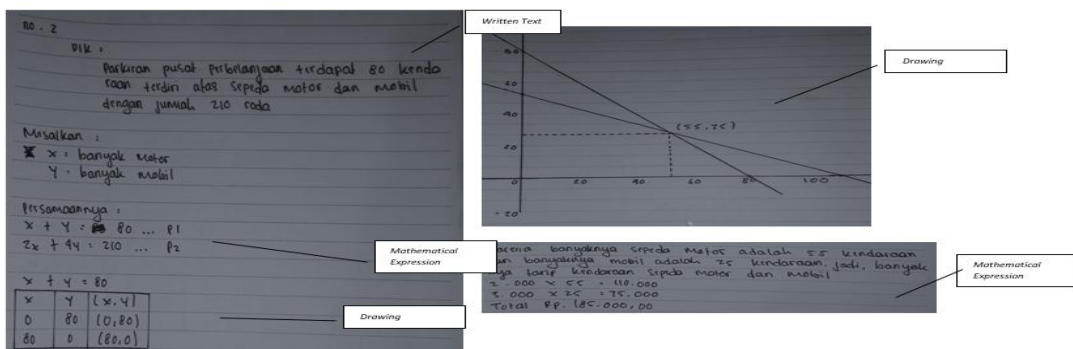 no. 2
Dik :
Parkiran pusat perbelanjaan terdapat 80 kenda
raan terdiri atas sepeda motor dan mobil
dengan jumlah 210 roda
Misalkan :
x = banyak motor
Y = banyak mobil
Persamaannya :
x + y = 80 ... P1
2x + 4y = 210 ... P2
x + y = 80
x y (x,y)
0 80 (0,80)
80 0 (80,0)
Written Text
Mathematical
Expression
Drawing
40
20
0 20 40 60 80 100
-20
(55,25)
Drawing
banyaknya sepeda motor adalah 55 kendaraan
banyaknya mobil adalah 25 kendaraan, jadi, banyak
nya tarif kendaraan sepeda motor dan mobil
2.000 x 55 = 110.000
3.000 x 25 = 75.000
Total Rp. 185.000,00
Mathematical
Expression